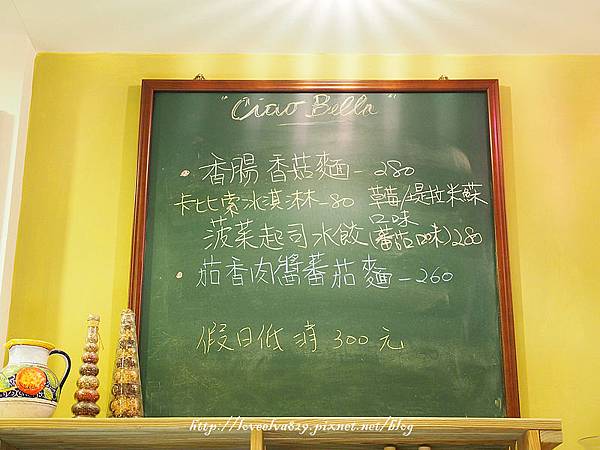 "Ciao Bella"
• 香腸香菇麵 - 280
卡比索冰淇淋 - 80 草莓/提拉米蘇
口味
菠菜起司水餃(蕃茄口味)280
• 茄香肉醬蕃茄麵 - 260
假日低消 300元
http://loveelva829.pixnet.net/blog